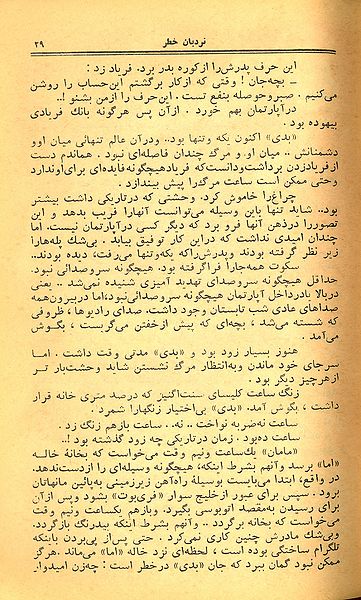 نردبان خطر
۳۹
این حرف پدرش‌را ازکوره بدر برد. فریاد زد :
ـ بچه‌جان ! وقتی که ازکار برگشتم این‌حساب را روشن
می‌کنیم . صبروحوصله بنفع تست . این‌حرف را ازمن بشنو !..
درآپارتمان بهم خورد . ازآن پس هرگونه بانك فریادی
بیهوده بود .
«بدی» اکنون یکه وتنها بود.. ودرآن عالم تنهائی میان اوو
دشمنانش .. میان او و مرگ چندان فاصله‌ای نبود . هماندم دست
ازفریادزدن برداشت‌ودانست‌که فریادهیچگونه فایده‌ای برای‌اوندارد
وحتی ممکن است ساعت مرگ‌را پیش بیندازد .
چراغ‌را خاموش کرد. وحشتی که درتاریکی داشت بیشتر
بود.. شاید تنها باین وسیله می‌توانست آنهارا فریب بدهد و این
تصوررا درذهن آنها فرو برد که دیگر کسی درآپارتمان نیست. اما
چندان امیدی نداشت که دراین کار توفیق بیابد . بی‌شك پله‌هارا
زیر نظر گرفته بودند وپدرش‌راکه یکه‌وتنها می‌رفت، دیده بودند..
سکوت همه‌جارا فراگرفته بود. هیچگونه سروصدائی نبود.
حداقل هیچگونه سروصدای تهدید آمیزی شنیده نمی‌شد .. یعنی
دربالا یادرداخل آپارتمان هیچگونه‌سروصدائی‌نبود،اما دربیرون‌همه
صداهای عادی شب تابستان وجود داشت. صدای رادیوها ، ظروفی
که شسته می‌شد ، بچه‌ای که پیش ازخفتن می‌گریست ، بگوش
می‌آمد .
هنوز بسیار زود بود و «بدی» مدتی وقت داشت . اما
سرجای خود ماندن وبه‌انتظار مرگ نشستن شاید وحشت‌بار تر
ازهرچیز دیگر بود .
زنگ ساعت کلیسای سنت‌اگنیز که درصد متری خانه قرار
داشت ، بگوش آمد. «بدی» بی‌اختیار زنگهارا شمرد .
ساعت نه‌ضربه نواخت .. نه . ساعت بازهم زنگ زد .
ساعت ده‌بود . زمان درتاریکی چه زود گذشته بود !..
«مامان» یك‌ساعت ونیم وقت می‌خواست که بخانهٔ خاله
«اما» برسد وآنهم بشرط اینکه، هیچگونه وسیله‌ای را ازدست‌ندهد.
در واقع، ابتدا می‌بایست بوسیلهٔ راه‌آهن زیرزمینی به‌پائین مانهاتان
برود . سپس برای عبور ازخلیج سوار «فری‌بوت» بشود وپس ازآن
برای رسیدن به‌مقصد اتوبوسی بگیرد. وبازهم یکساعت ونیم وقت
می‌خواست که بخانه برگردد .. وآنهم بشرط اینکه بیدرنگ بازگردد.
وبی‌شك مادرش چنین کاری نمی‌کرد . حتی پس‌از پی‌بردن باینکه
تلگرام ساختگی بوده است ، لحظه‌ای نزد خاله «اما» می‌ماند .هرگز
ممکن نبود گمان ببرد که جان «بدی» درخطر است : چه‌زن امیدوار.